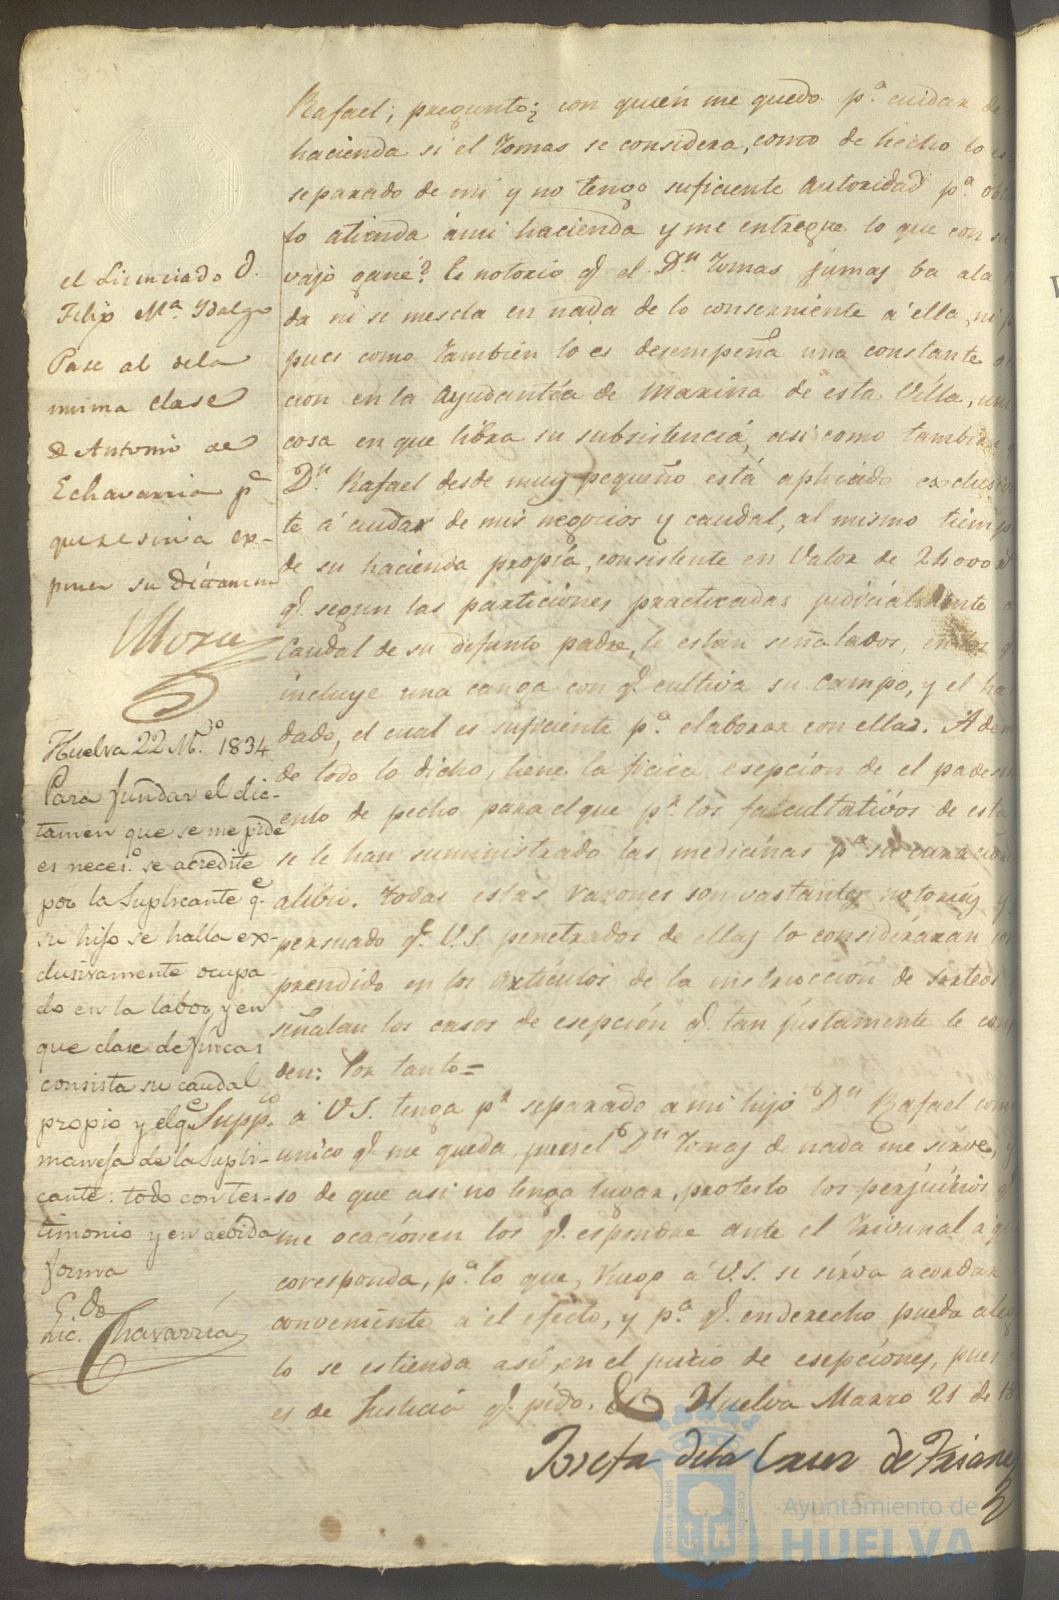 Rafael; pregunto; con quién me quedo p.ª cuidar de
hacienda si el Tomas se considera, como de hecho lo es
separado de mi y no tengo suficiente autoridad p.ª
lo atienda ámi hacienda y me entregue lo que con su
vajo gané? Es notorio q.ᵉ el D.ⁿ Tomas jamas ba ala
da ni se mescla en nada de lo conserniente á ella, ni
pues como tambien lo es desempeña una constante
cion en la Ayudantía de Marina de esta Villa,
cosa en que libra su subsistencia, asi como tambien
D.ⁿ Rafael desde muy pequeño está aplicado
te á cuidar de mis negocios y caudal, al mismo tiempo
de su hacienda propia, consistente en Valor de 24000
q.ᵉ segun las particiones practicadas judicialmente
Caudal de su difunto padre, le están señalados, en los q
incluye una canga con q.ᵉ cultiva su Campo, y el
dado, el cual es suficiente p.ª elaborar con ellas.
de todo lo dicho, tiene la ficica esepción de el
ento de pecho para el que p.ʳ los facultativos de esta
se le han suministrado las medicinas p.ª su curacion
alibio. Todas estas razones son vastantes notorias y
persuado q.ᵉ V.S. penetrados de ellas lo considéraran
prendido en los artículos de la instruccion de sorteos
señalan los casos de esepción q.ᵉ tan justamente le
den: Por tanto=
Supp.ᶜᵒ á V.S. tenga p.ʳ separado a mi hijo D.ⁿ Rafael
unico q.ᵉ me queda, pues el D.ⁿ Tomas de nada me sirve,
so de que asi no tenga lugar, protesto los perjuicios q
me ocacíonen los q.ᵉ espondre ante el Trivunal á
coresponda, p.ª lo que, Ruego á V.S. se sirva acordar
conveniente á el efecto, y p.ª q.ᵉ en derecho pueda
lo se estienda asi en el juicio de esepcíones, pues
es de Justicia q.ᵉ pido. &ª Huelva Marzo 21 de
Josefa dela Cruz de
el Licenciado D.
Felip M.ª Ydalgo
Pase al dela
misma clase
D Antonio de
Echavarria p.ª
que se sirva ex-
poner su dictamen
Mora
Huelva 22 M.ᶻᵒ 1834
Para fundar el dic-
tamen que se me pide
es neces.º se acredite
por la Suplicante q.ᵉ
su hijo se halla ex-
clusivamente ocupa-
do en la labor, y en
que clase de fincas
consista su caudal
propio y el q.ᵉ
maneja de la Supli-
cante: todo con tes-
timonio y en debida
forma
Lic.ᵈᵒ Echavarría
PORTUS MARIS
Ayuntamiento de
HUELVA